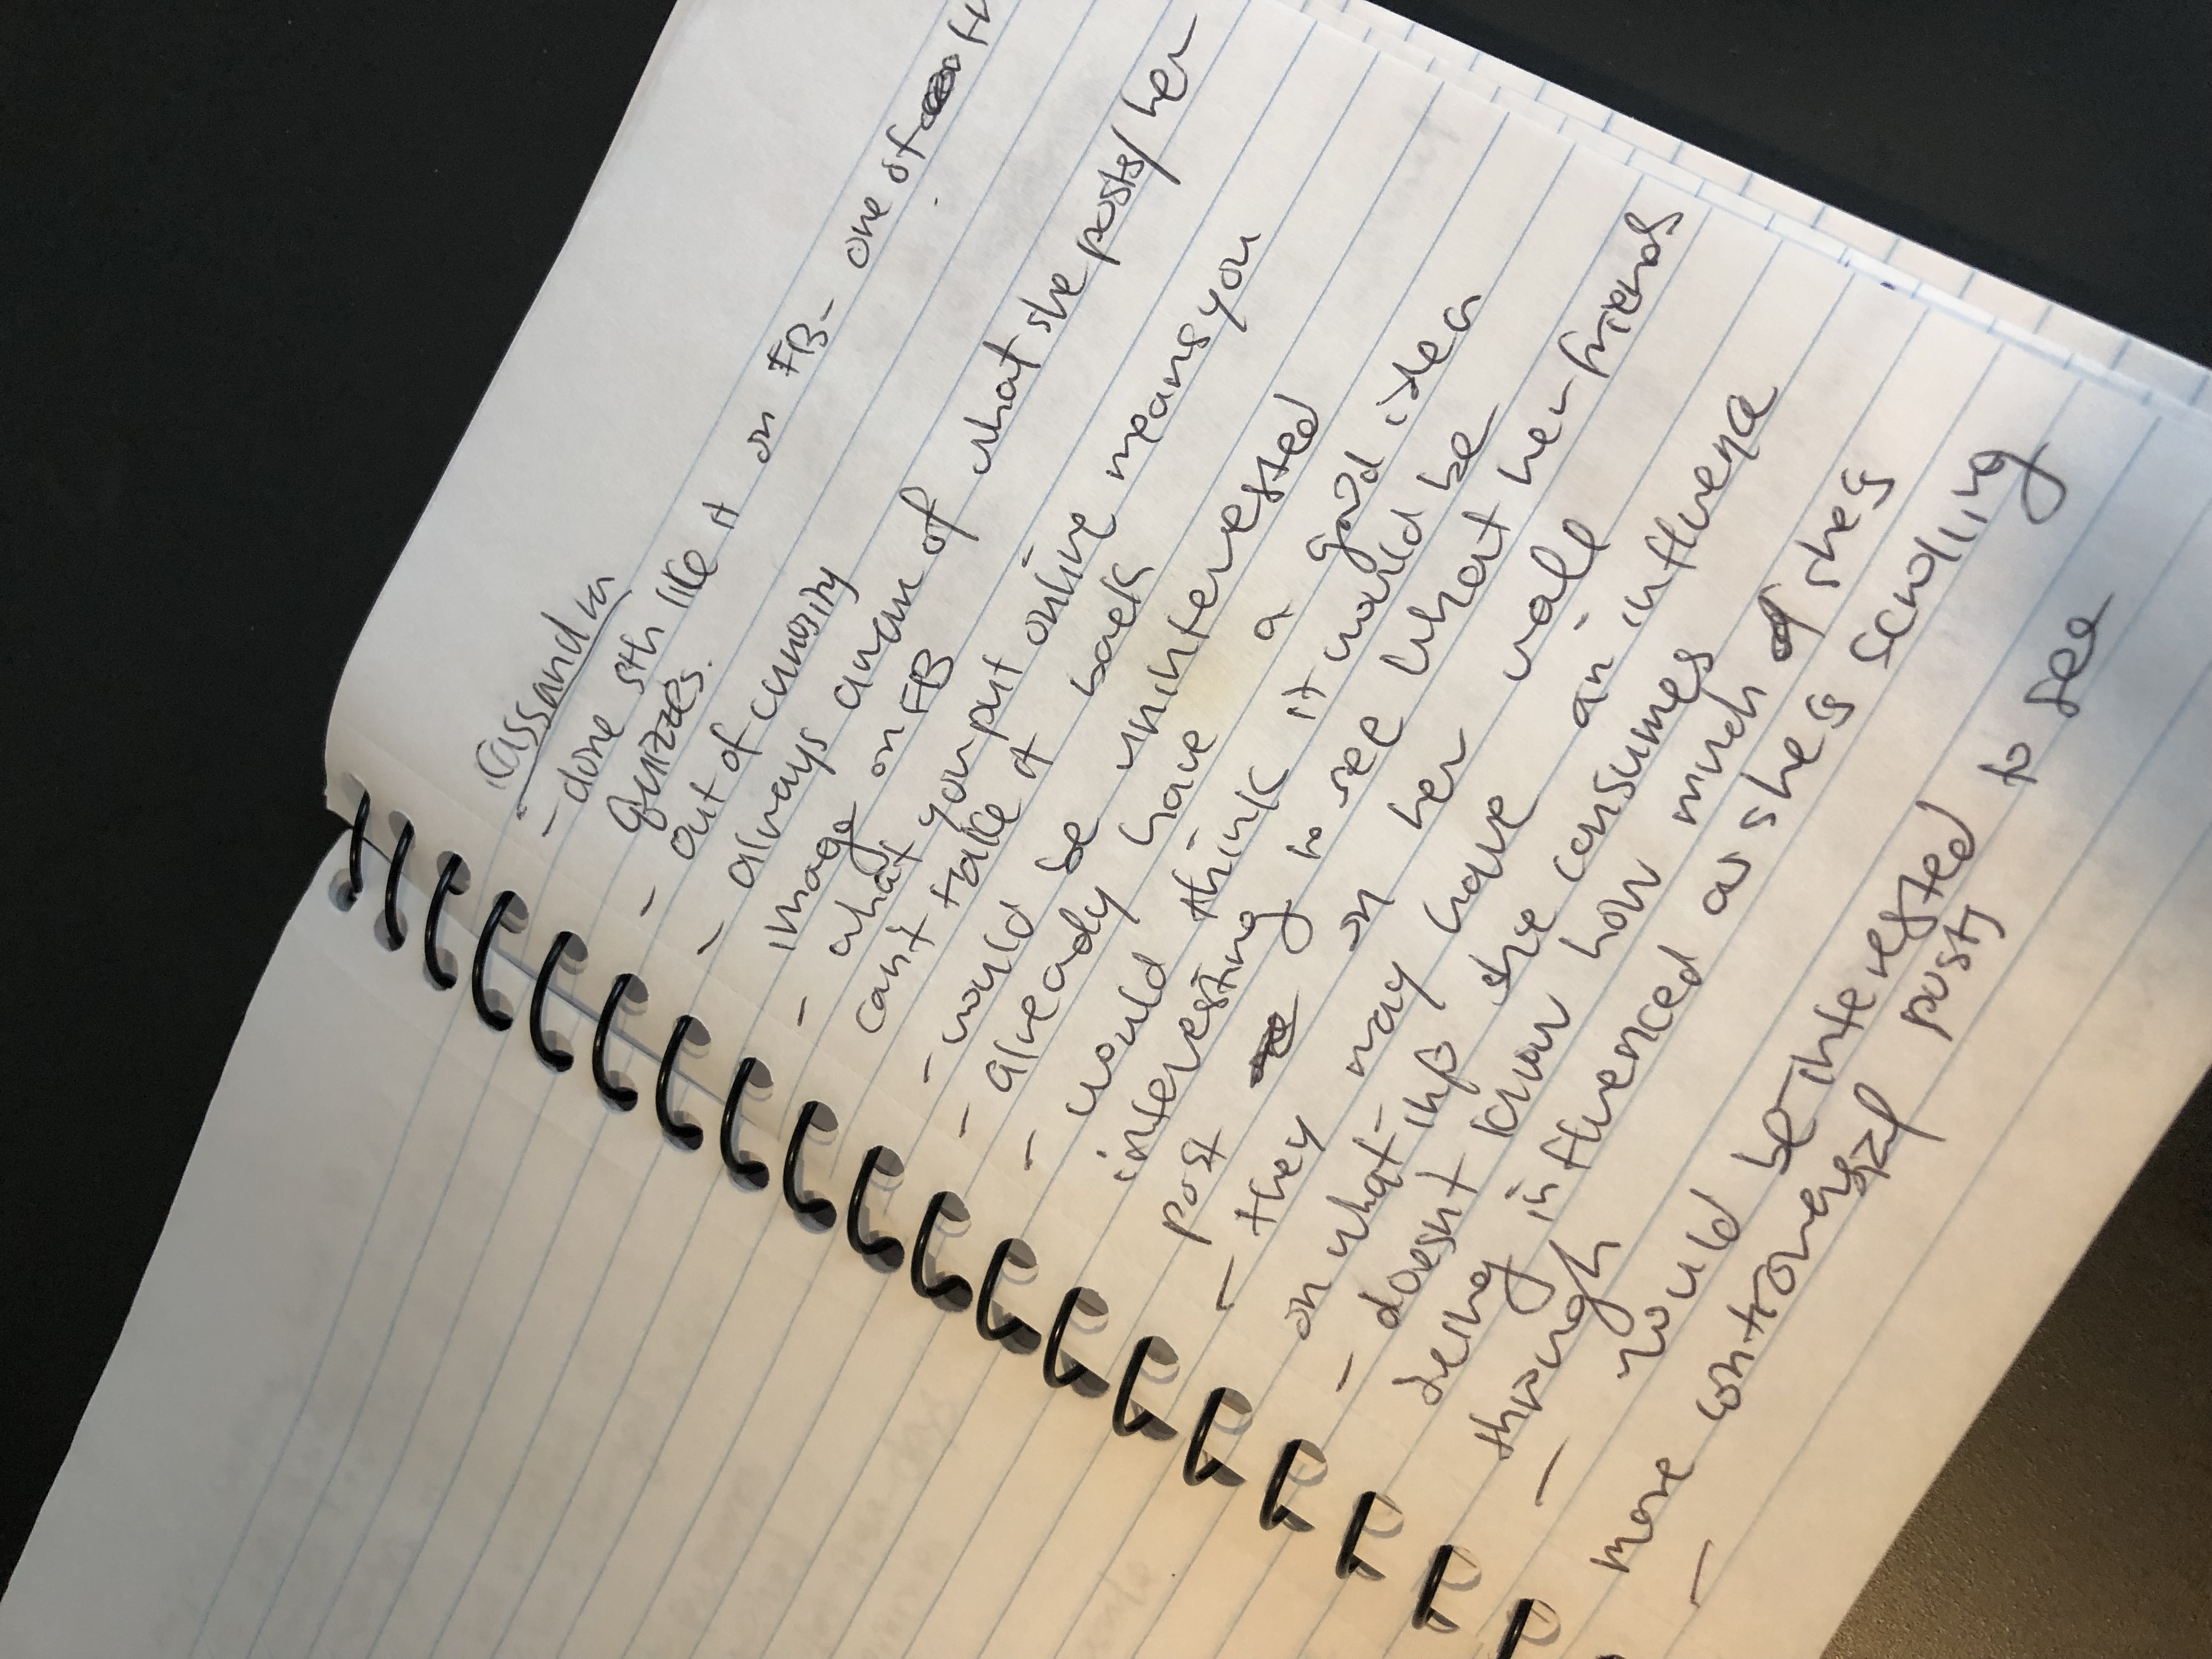 Kassandra
- done sth like it on FB - one of
quizzes.
- out of curiosity
- always aware of what she posts/ her
image on FB
- what you put online means you
can't take it back
- would be uninterested
- already have a good idea
- would think it would be
interesting to see what her friends
post on her wall
- they may have an influence
on what info she consumes
- doesn't know how much she's
being influenced as she's scrolling
through
- would be interested to see
more controversial posts
-